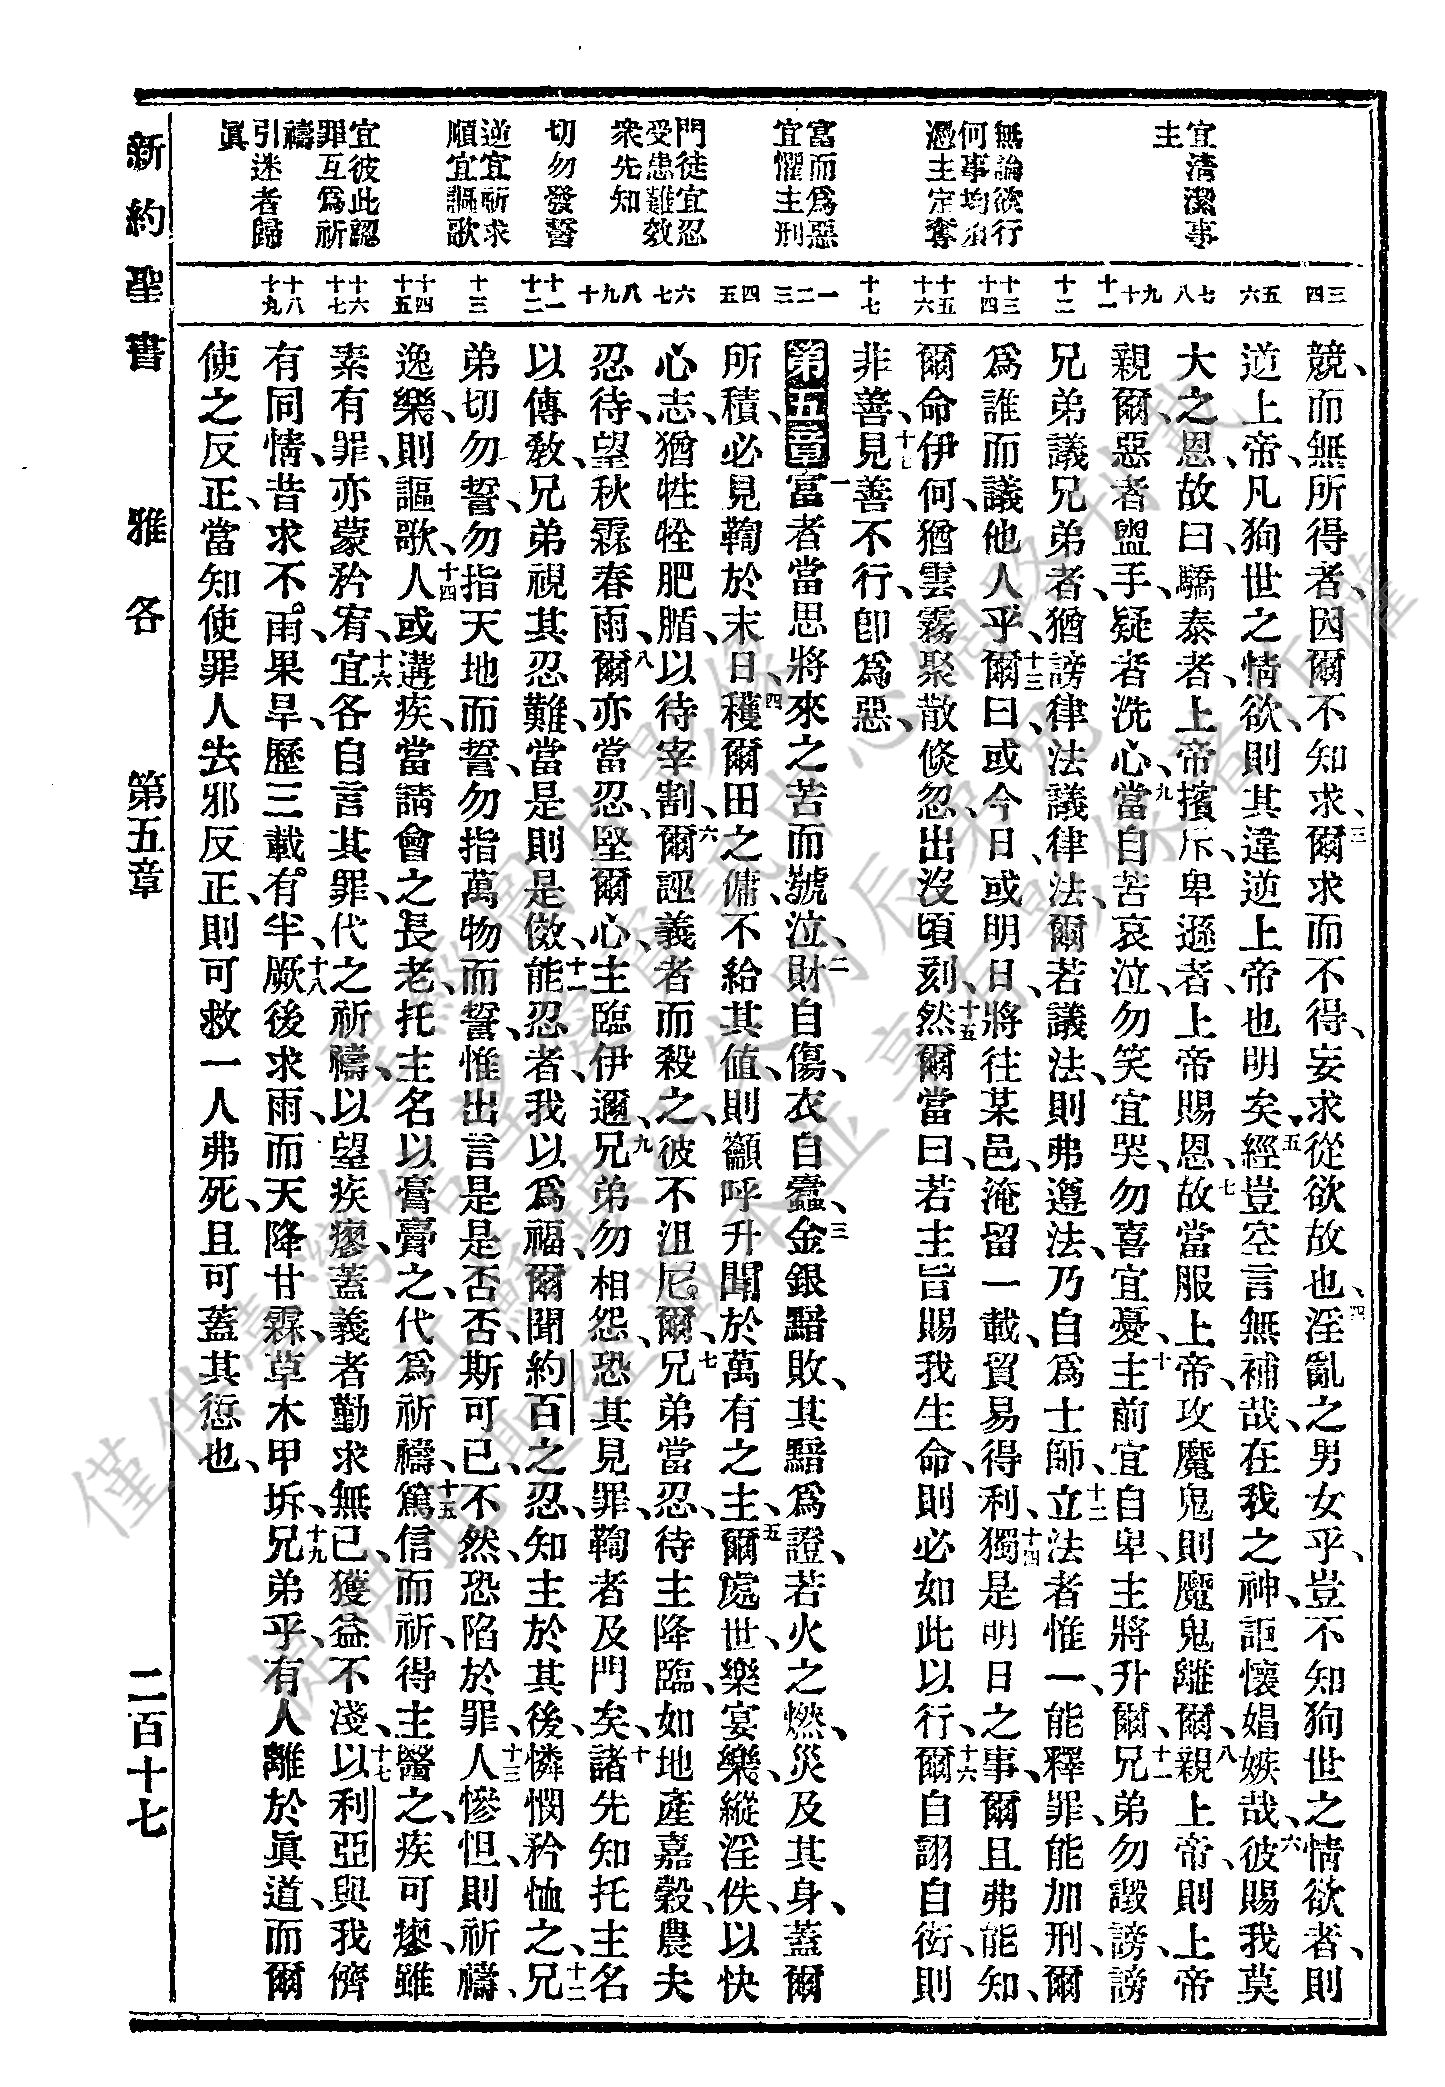 宜清潔事
主
無論欲行
何事均須
憑主定奪
富而爲惡
宜懼主刑
門徒宜忍
受患難效
衆先知
切勿發誓
逆宜祈求
順宜謳歌
宜彼此認
罪互爲祈
禱
引迷者歸
眞
三四
五六
七八
九十
十一
十二
十三
十四
十五
十六
十七
一二三
四五
六七
八九十
十一
十二
十三
十四
十五
十六
十七
十八
十九
競、而無所得者、因爾不知求、三爾求而不得、妄求從欲故也、四淫亂之男女乎、豈不知狥世之情欲者、則
道上帝、凡狥世之情欲、則其違逆上帝也明矣、五經豈空言無補哉、在我之神、詎懷娼嫉哉、六彼賜我莫
大之恩、故曰、驕泰者、上帝擯斥、卑遜者、上帝賜恩、七故當服上帝、攻魔鬼則魔鬼離爾、八親上帝、則上帝
親爾、惡者盥手、疑者洗心、九當自苦哀泣、勿笑宜哭、勿喜宜憂、十主前宜自卑、主將升爾、十一兄弟勿譭謗、謗
兄弟議兄弟者、猶謗律法議律法、爾若議法、則弗遵法、乃自爲士師、十二立法者惟一、能釋罪、能加刑、爾
爲誰而議他人乎、十三爾曰、或今日、或明日、將往某邑、淹留一載、貿易得利、十四獨是明日之事、爾且弗能知、
爾命伊何、猶雲霧聚散倏忽、出沒頃刻、十五然爾當曰、若主旨賜我生命、則必如此以行、十六爾自詡自衒、則
非善、十七見善不行、卽爲惡、
第五章 一富者當思將來之苦而號泣、二財自傷、衣自蠹、三金銀黯敗、其黯爲證、若火之燃、災及其身、蓋爾
所積、必見鞫於末日、四穫爾田之傭、不給其値、則籲呼升聞於萬有之主、五爾處世、樂宴樂、縱淫佚、以快
心志、猶牲牷肥腯、以待宰割、六爾誣義者而殺之、彼不沮尼爾、七兄弟當忍、待主降臨、如地產嘉穀、農夫
忍待、望秋霖春雨、八爾亦當忍、堅爾心、主臨伊邇、九兄弟勿相怨、恐其見罪、鞫者及門矣、十諸先知托主名
以傳敎、兄弟視其忍難、當是則是傚、十一能忍者、我以爲福、爾聞約百之忍、知主於其後、憐憫矜恤之、十二兄
弟切勿誓、勿指天地而誓、勿指萬物而誓、惟出言是是否否、斯可已、不然、恐陷於罪、十三人慘怛、則祈禱、
逸樂、則謳歌、十四人或遘疾、當請會之長老、托主名以膏膏之、代爲祈禱、十五篤信而祈、得主醫之、疾可瘳、雖
素有罪、亦蒙矜宥、十六宜各自言其罪、代之祈禱、以望疾瘳、蓋義者勤求無已、獲益不淺、十七以利亞與我儕
有同情、昔求不雨、果旱歷三載有半、十八厥後求雨、而天降甘霖、草木甲坼、十九兄弟乎、有人離於眞道、而爾
使之反正、當知使罪人去邪反正、則可救一人弗死、且可蓋其愆也、
新約聖書　雅各　第五章　二百十七